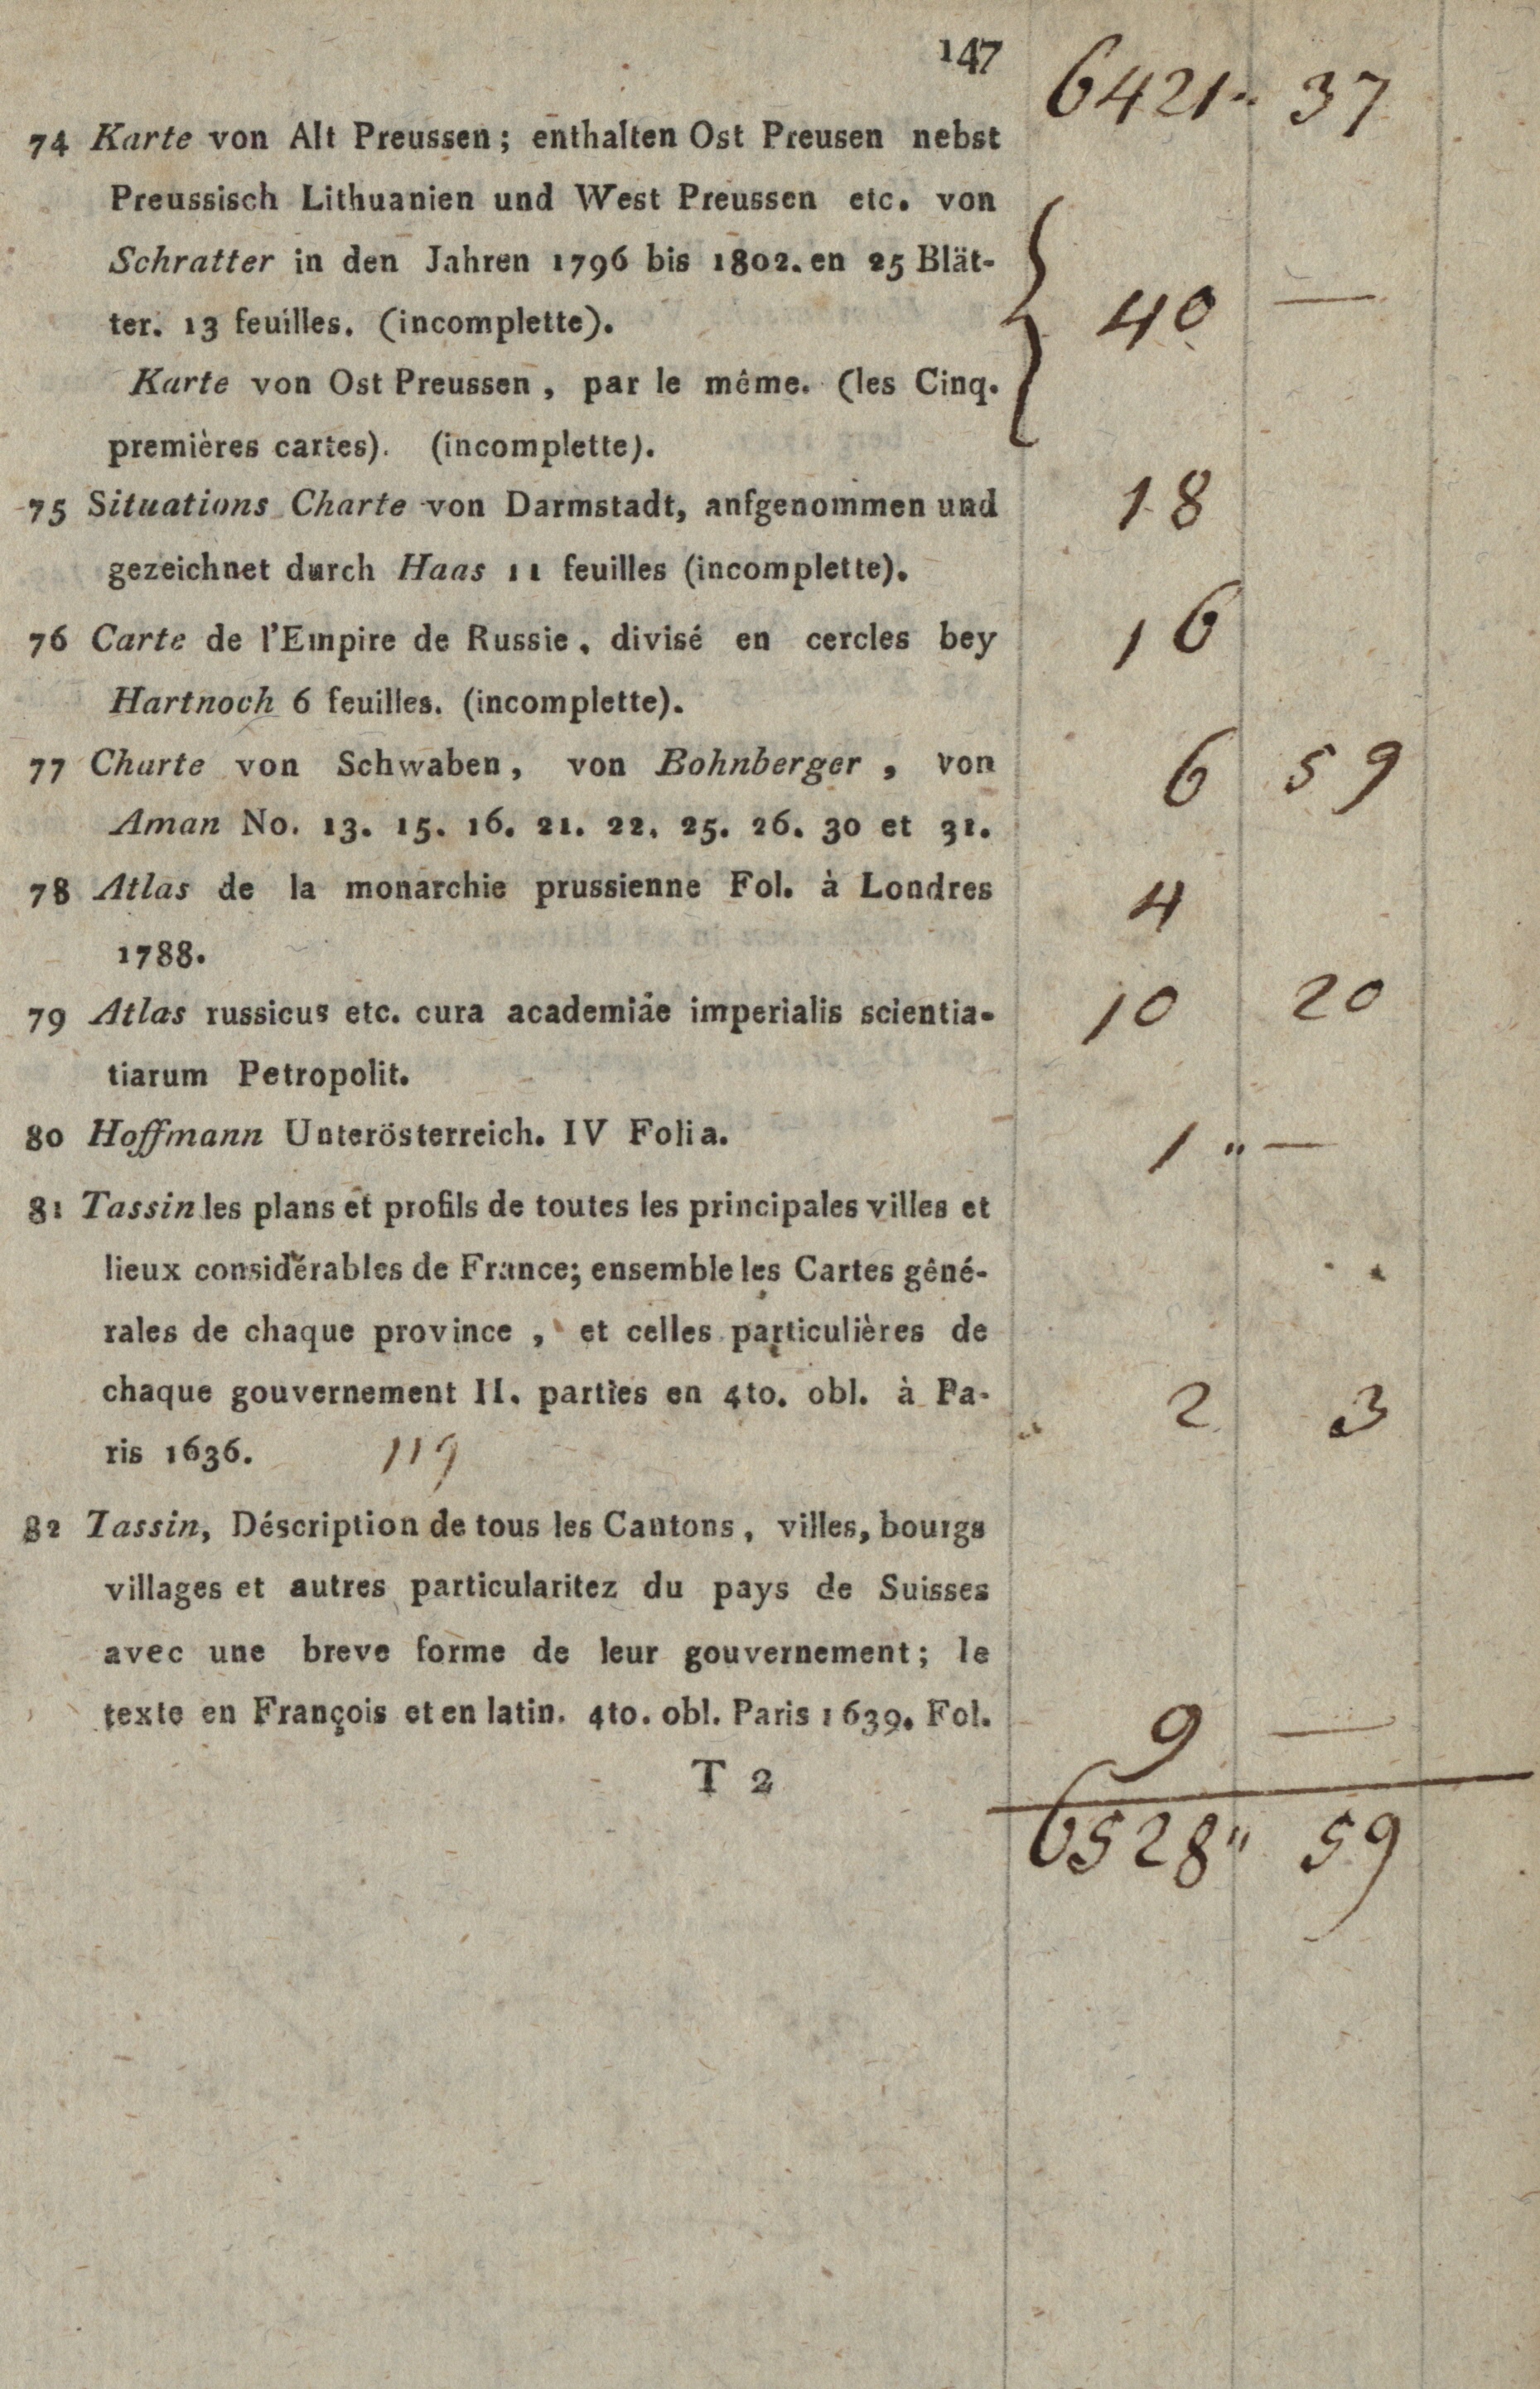 147
6421" 37
74 Karte von Alt Preussen; enthalten Ost Preusen nebst
Preussisch Lithuanien und West Preussen etc. von
Schratter in den Jahren 1796 bis 1802. en 25 Blät-
ter. 13 feuilles. (incomplette).
40 —
Karte von Ost Preussen, par le même. (les Cinq.
premières cartes). (incomplette).
75 Situations Charte von Darmstadt, anfgenommen und 18
gezeichnet durch Haas 11 feuilles (incomplette).
76 Carte de l'Empire de Russie, divisé en cercles bey 16
Hartnoch 6 feuilles. (incomplette).
77 Charte von Schwaben, von Bohnberger, von 6 59
Aman No. 13. 15. 16. 21. 22. 25. 26. 30 et 31.
78 Atlas de la monarchie prussienne Fol. à Londres 4
1788.
79 Atlas russicus etc. cura academiäe imperialis scientia- 10 20
tiarum Petropolit.
80 Hoffmann Unterösterreich. IV Folia. 1 " —
81 Tassin les plans et profils de toutes les principales villes et
lieux considérables de France; ensemble les Cartes gêné-
rales de chaque province, et celles particulières de
chaque gouvernement II. parties en 4to. obl. à Pa- 2 3
ris 1636. 119
82 Tassin, Déscription de tous les Cantons, villes, bourgs
villages et autres particularitez du pays de Suisses
avec une breve forme de leur gouvernement; le
texte en François et en latin. 4to. obl. Paris 1639. Fol. 9 —
T 2
6528" 59